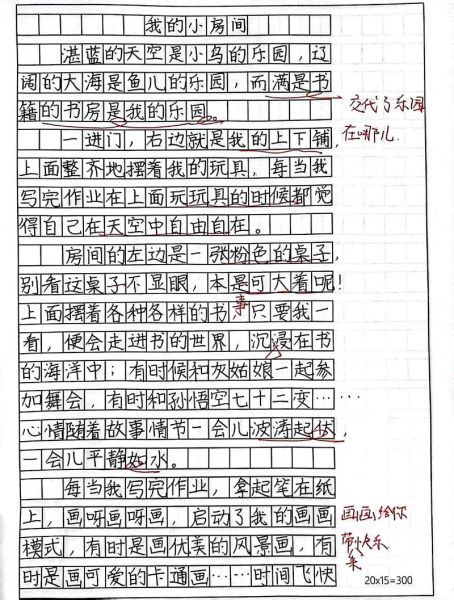 我的小房间
湛蓝的天空是小鸟的乐园，辽
阔的大海是鱼儿的乐园，而满是书
籍的书房是我的乐园。
交代了乐园
在哪儿.
一进门，右边就是我的上下铺，
上面整齐地摆着我的玩具，每当我
写完作业在上面玩玩具的时候都觉
得自己在天空中自由自在。
房间的左边是一张粉色的桌子，
别看这桌子不显眼，本是可大着呢！
事
上面摆着各种各样的书，只要我一
看，便会走进书的世界，沉浸在书
的海洋中；有时候和灰姑娘一起参
加舞会，有时和孙悟空七十二变……
心情随着故事情节一会儿波涛起伏，
一会儿平静如水。
每当我写完作业，拿起笔在纸
上，画呀画呀画，启动了我的画画
模式，有时是画优美的风景画，有
时是画可爱的卡通画……时间飞快
画画给你
带来快乐
20x15=300